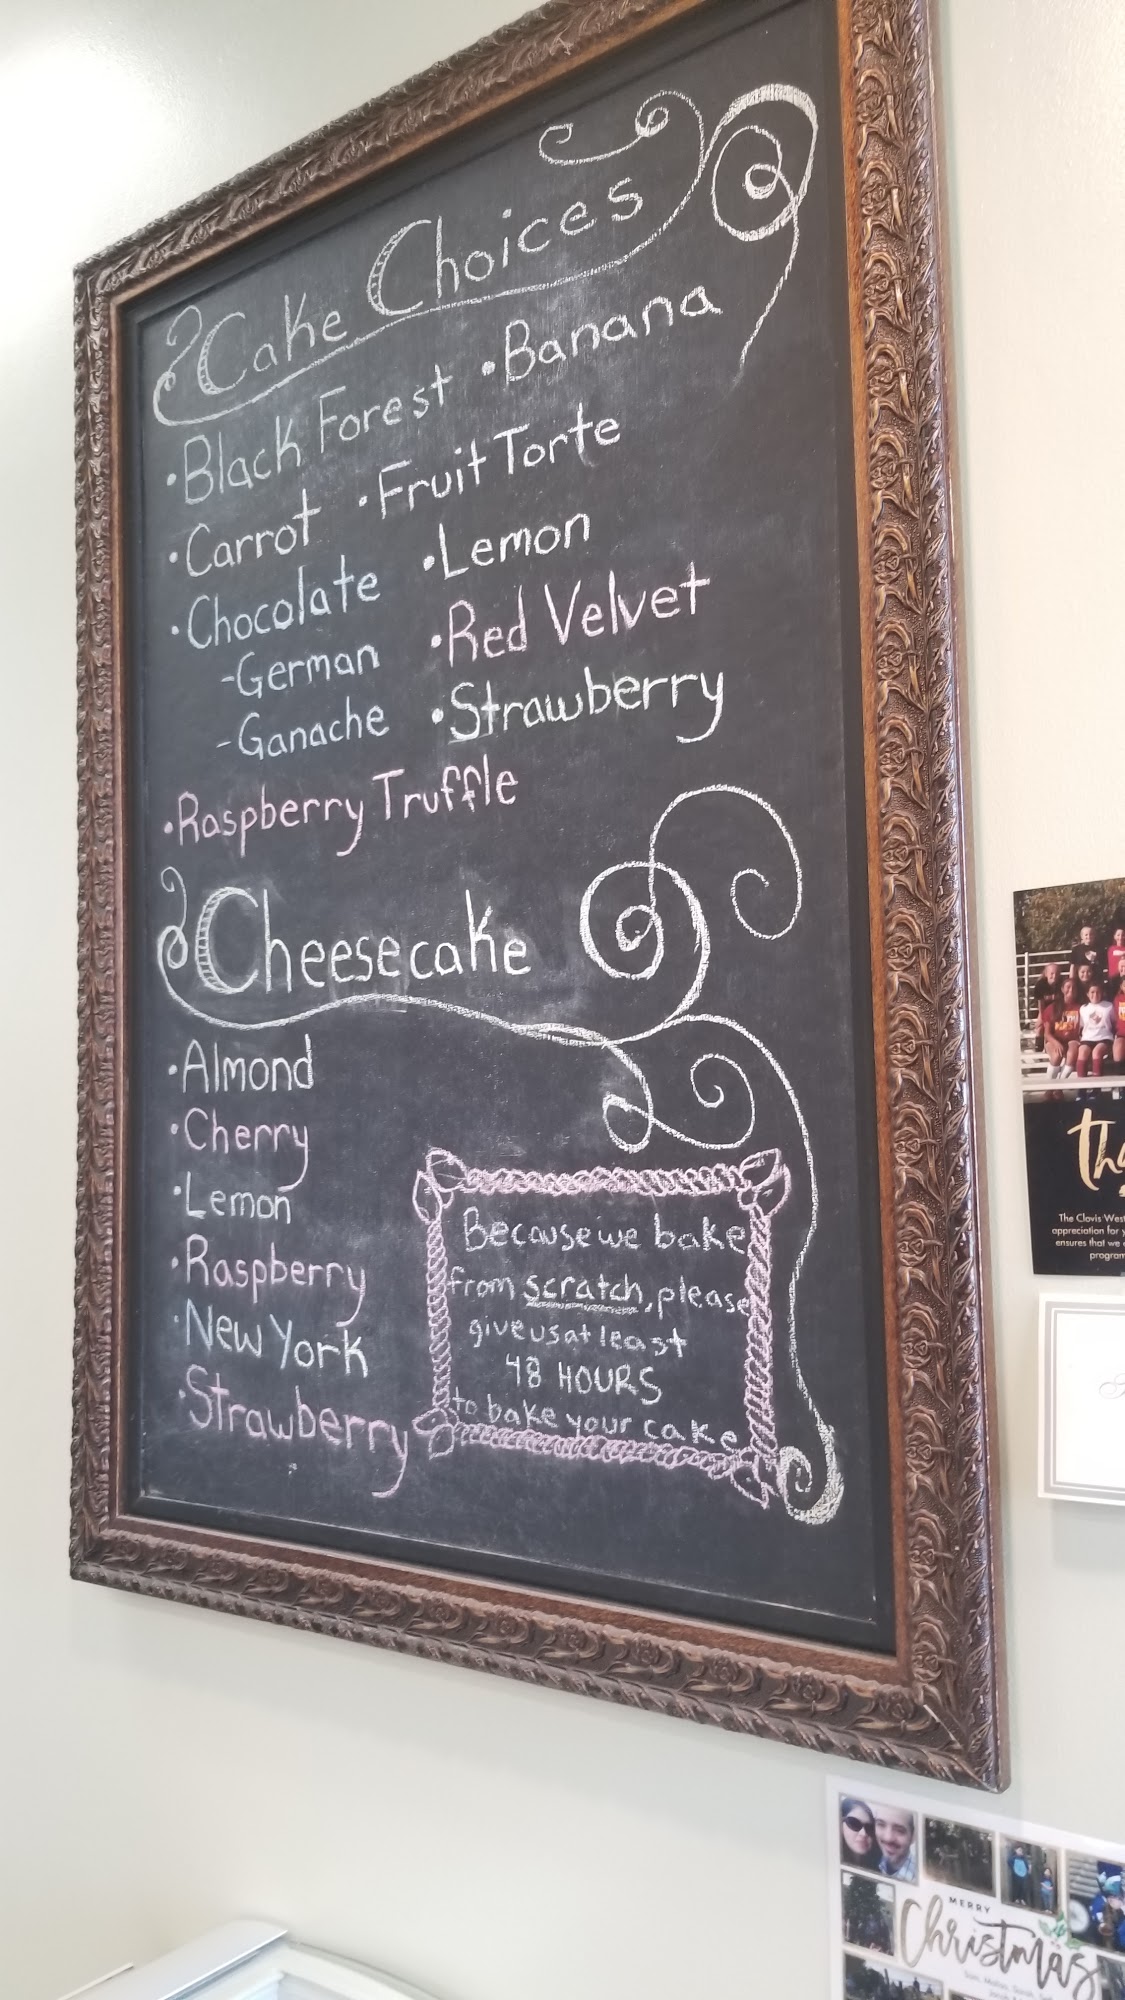 Cake Choices
• Black Forest • Banana
• Carrot • Fruit Torte
• Chocolate • Lemon
- German • Red Velvet
- Ganache • Strawberry
• Raspberry Truffle
Cheesecake
• Almond
• Cherry
• Lemon
• Raspberry
• New York
• Strawberry
Because we bake
from scratch, please
give us at least
48 HOURS
to bake your cake
The Clovis West
appreciation for
ensures that we
program
MERRY
Christmas